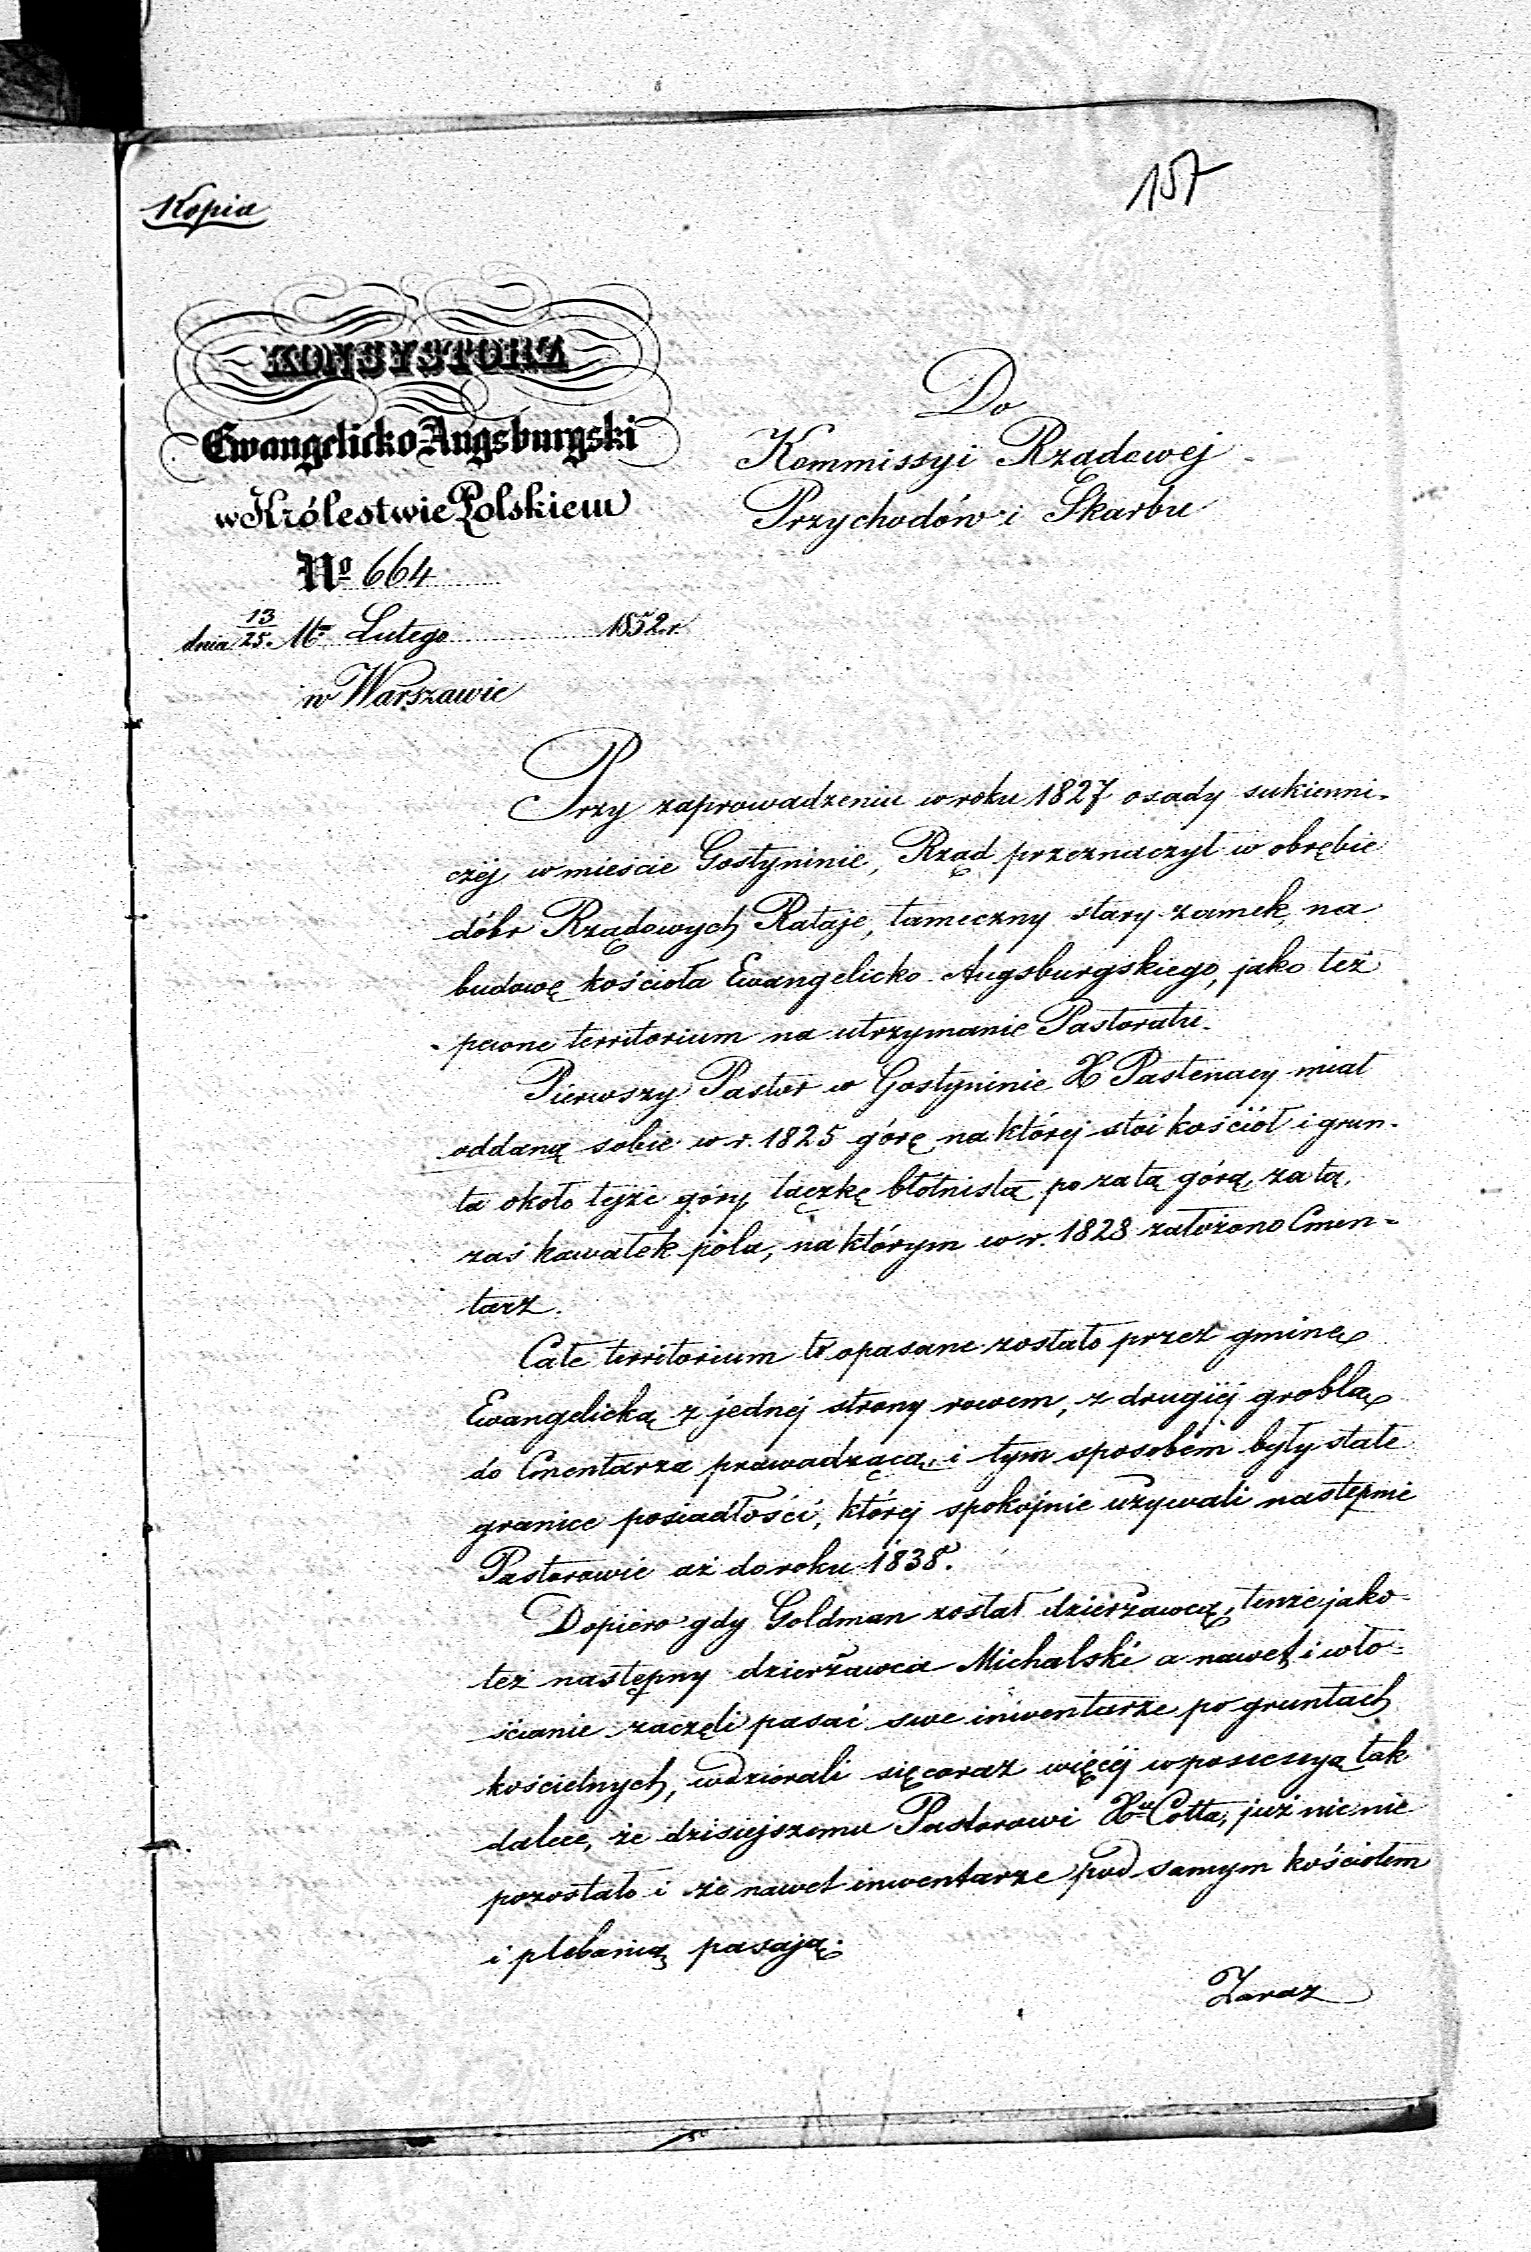 157
Kopia
KONSYSTORZ
Ewangelicko-Augsburgski
w Królestwie Polskiem
Nº 664
dnia 13/25. Mca Lutego 1852.r.
w Warszawie
Do
Kommissyi Rządowej
Przychodów i Skarbu
Przy zaprowadzeniu w roku 1827 osady sukienni-
czéj w mieście Gostyninie, Rząd przeznaczył w obrębie
dóbr Rządowych Rataje, tameczny stary zamek, na
budowę kościoła Ewangelicko-Augsburgskiego, jako też
pewne territorium na utrzymanie Pastoratu.
Pierwszy Pastor w Gostyninie X Pastenacy miał
oddaną sobie w r. 1825 górę na której stoi kościół i grun-
ta około tejże góry, łączkę błotnistą po za tą górą, za tą
zaś kawałek pola, na którym w r. 1828 założono Cmen-
tarz.
Całe territorium to opasane zostało przez gminę
Ewangelicką z jednej strony rowem, z drugiéj groblą
do Cmentarza prowadzącą, i tym sposobem były stałe
granice posiadłości, której spokojnie używali następnie
Pastorowie aż do roku 1838.
Dopiero gdy Goldman został dzierżawcą, tenże jako
też następny dzierżawca Michalski a nawet i wło-
ścianie zaczęli pasać swe inwentarze po gruntach
kościelnych, wdzierali się coraz więcéj w possessyą tak
dalece, że dzisiejszemu Pastorowi Xu Cotta, już nic nie
pozostało i że nawet inwentarze pod samym kościołem
i plebanią pasają.
Zaraz